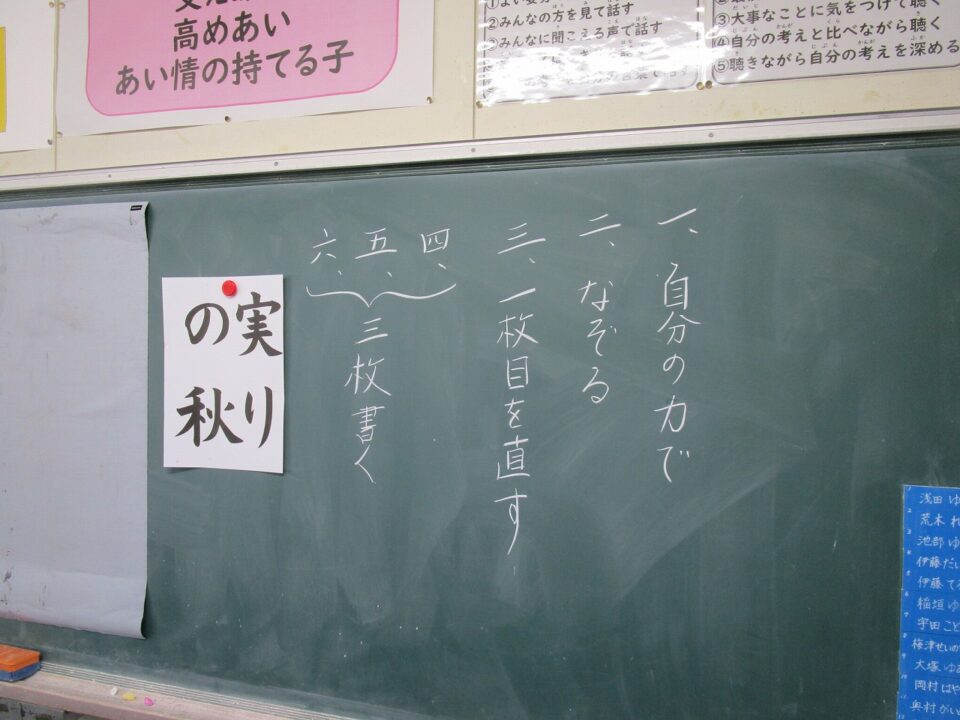 高めあい
あい情の持てる子
②みんなの方を見て話す
③みんなに聞こえる声で話す
③大事なことに気をつけて聴く
④自分の考えと比べながら聴く
⑤聴きながら自分の考えを深める
一、自分の力で
二、なぞる
三、一枚目を直す
四、
五、
六、
三枚書く
実り
の秋
浅田
荒木
池部
伊藤
伊藤
稲垣
宇田
梅津
大塚
岡村
奥村